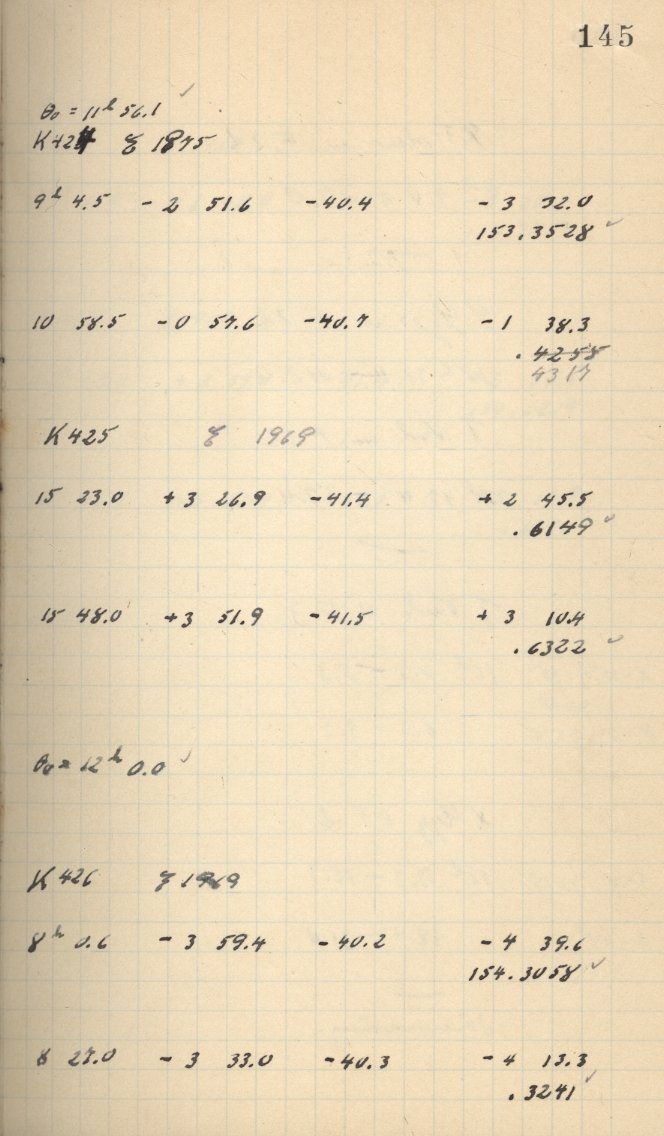 145
θ₀ = 11ʰ 56.1 ✓
K424 ξ 1875
9ʰ 4.5 - 2 51.6 -40.4 - 3 32.0
153.3528 ✓
10 58.5 - 0 57.6 -40.7 - 1 38.3
.4255
4317
K425 ξ 1969
15 23.0 + 3 26.9 -41.4 + 2 45.5
.6149 ✓
15 48.0 + 3 51.9 -41.5 + 3 10.4
.6322 ✓
θ₀ = 12ʰ 0.0 ✓
K426 ξ 1969
8ʰ 0.6 - 3 59.4 -40.2 - 4 39.6
154.3058 ✓
8 27.0 - 3 33.0 -40.3 - 4 13.3
.3241 ✓